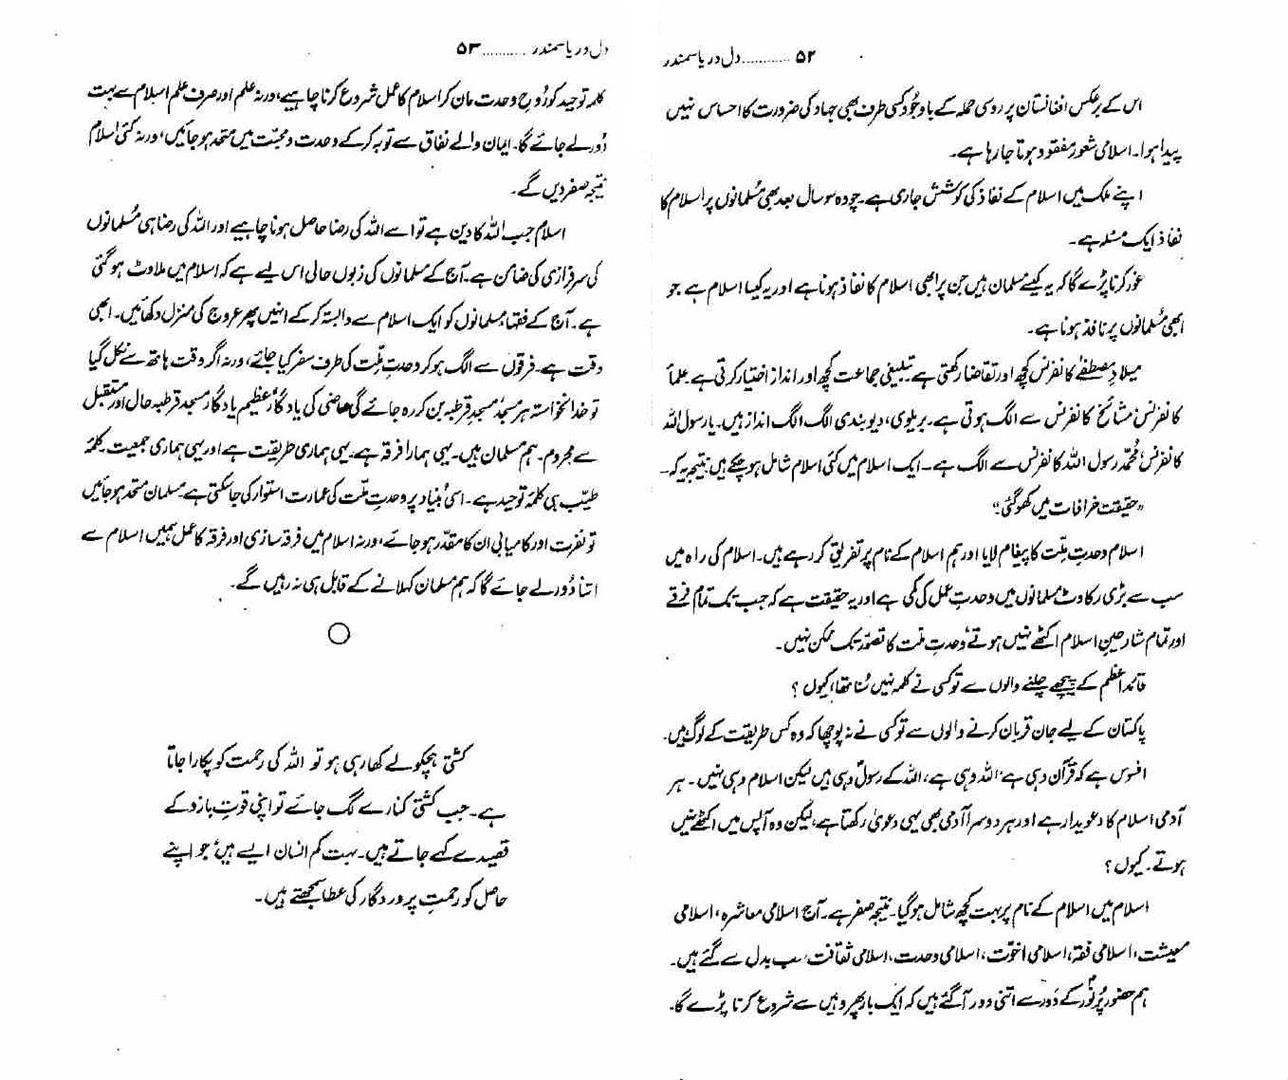 ۵۲ ............ دل دریا سمندر
اس کے برعکس افغانستان پر روسی حملہ کے باوجُود کسی طرف بھی جہاد کی ضرورت کا احساس نہیں
پیدا ہوا۔ اسلامی شعور مفقود ہوتا جا رہا ہے۔
اپنے ملک میں اسلام کے نفاذ کی کوشش جاری ہے۔ چودہ سو سال بعد بھی مُسلمانوں پر اسلام کا
نفاذ ایک مسئلہ ہے۔
غور کرنا پڑے گا کہ یہ کیسے مسلمان ہیں جن پر ابھی اسلام کا نفاذ ہونا ہے اور یہ کیسا اسلام ہے جو
ابھی مُسلمانوں پر نافذ ہونا ہے۔
میلادِ مصطفےٰ کانفرنس کچھ اور تقاضا رکھتی ہے۔ تبلیغی جماعت کچھ اور انداز اختیار کرتی ہے۔ علماُ
کانفرنس، مشائخ کانفرنس سے الگ ہوتی ہے۔ بریلوی، دیوبندی الگ الگ انداز ہیں۔ یا رسول اللہ
کانفرنس، محمّد رسول اللہ کانفرنس سے الگ ہے۔ ایک اسلام میں کئی اسلام شامل ہو چکے ہیں، نتیجہ یہ کہ۔
”حقیقت خرافات میں کھو گئی“
اسلام وحدتِ ملّت کا پیغام لایا اور ہم اسلام کے نام پر تفریق کر رہے ہیں۔ اسلام کی راہ میں
سب سے بڑی رکاوٹ مسلمانوں میں وحدتِ عمل کی کمی ہے اور یہ حقیقت ہے کہ جب تک تمام فرقے
اور تمام شارحینِ اسلام اکٹھے نہیں ہوتے، وحدتِ ملّت کا تصوّر تک ممکن نہیں۔
قائداعظم کے پیچھے چلنے والوں سے تو کسی نے کلمہ نہیں سُنا تھا، کیوں ؟
پاکستان کے لیے جان قربان کرنے والوں سے تو کسی نے نہ پوچھا کہ وہ کس طریقت کے لوگ ہیں۔
افسوس ہے کہ قرآن وہی ہے، اللہ وہی ہے، اللہ کے رسولؐ وہی ہیں لیکن اسلام وہی نہیں۔ ہر
آدمی اسلام کا دعویدار ہے اور ہر دوسرا آدمی بھی یہی دعویٰ رکھتا ہے، لیکن وہ آپس میں اکٹھے نہیں
ہوتے۔ کیوں ؟
اسلام میں اسلام کے نام پر بہت کچھ شامل ہو گیا۔ نتیجہ صفر ہے۔ آج اسلامی معاشرہ، اسلامی
معیشت، اسلامی فقہ، اسلامی اخوّت، اسلامی وحدت، اسلامی ثقافت، سب بدل سے گئے ہیں۔
ہم حضور پُرنُورؐ کے دَور سے اتنی دور آ گئے ہیں کہ ایک بار پھر وہیں سے شروع کرنا پڑے گا۔
دل دریا سمندر ............ ۵۳
کلمہ توحید کو رُوحِ وحدت مان کر اسلام کا عمل شروع کرنا چاہیے، ورنہ علم اور صرف علم اسلام سے بہت
دُور لے جائے گا۔ ایمان والے نفاق سے توبہ کر کے وحدت و محبّت میں متحد ہو جائیں، ورنہ کئی اسلام
نتیجہ صفر دیں گے۔
اسلام جب اللہ کا دین ہے تو اسے اللہ کی رضا حاصل ہونا چاہیے اور اللہ کی رضا ہی مُسلمانوں
کی سرفرازی کی ضامن ہے۔ آج کے مسلمانوں کی زبوں حالی اس لیے ہے کہ اسلام میں ملاوٹ ہو گئی
ہے۔ آج کے فقہا، مُسلمانوں کو ایک اسلام سے وابستہ کر کے انہیں پھر عروج کی منزل دکھائیں۔ ابھی
وقت ہے۔ فرقوں سے الگ ہو کر وحدتِ ملّت کی طرف سفر کیا جائے، ورنہ اگر وقت ہاتھ سے نکل گیا
تو خدانخواستہ ہر مسجد، مسجدِ قرطبہ بن کر رہ جائے گی، ماضی کی یادگار، عظیم یادگار مسجد قرطبہ حال اور مستقبل
سے محروم۔ ہم مسلمان ہیں۔ یہی ہمارا فرقہ ہے۔ یہی ہماری طریقت ہے اور یہی ہماری جمعیت۔ کلمۂ
طیّب ہی کلمۂ توحید ہے۔ اسی بُنیاد پر وحدتِ ملّت کی عمارت استوار کی جا سکتی ہے۔ مسلمان متحد ہو جائیں
تو نصرت اور کامیابی ان کا مقدّر ہو جائے، ورنہ اسلام میں فرقہ سازی اور فرقہ کا عمل ہمیں اسلام سے
اتنا دُور لے جائے گا کہ ہم مسلمان کہلانے کے قابل ہی نہ رہیں گے۔
کشتی ہچکولے کھا رہی ہو تو اللہ کی رحمت کو پکارا جاتا
ہے۔ جب کشتی کنارے لگ جائے تو اپنی قوتِ بازو کے
قصیدے کہے جاتے ہیں۔ بہت کم انسان ایسے ہیں، جو اپنے
حاصل کو رحمتِ پروردگار کی عطا سمجھتے ہیں۔